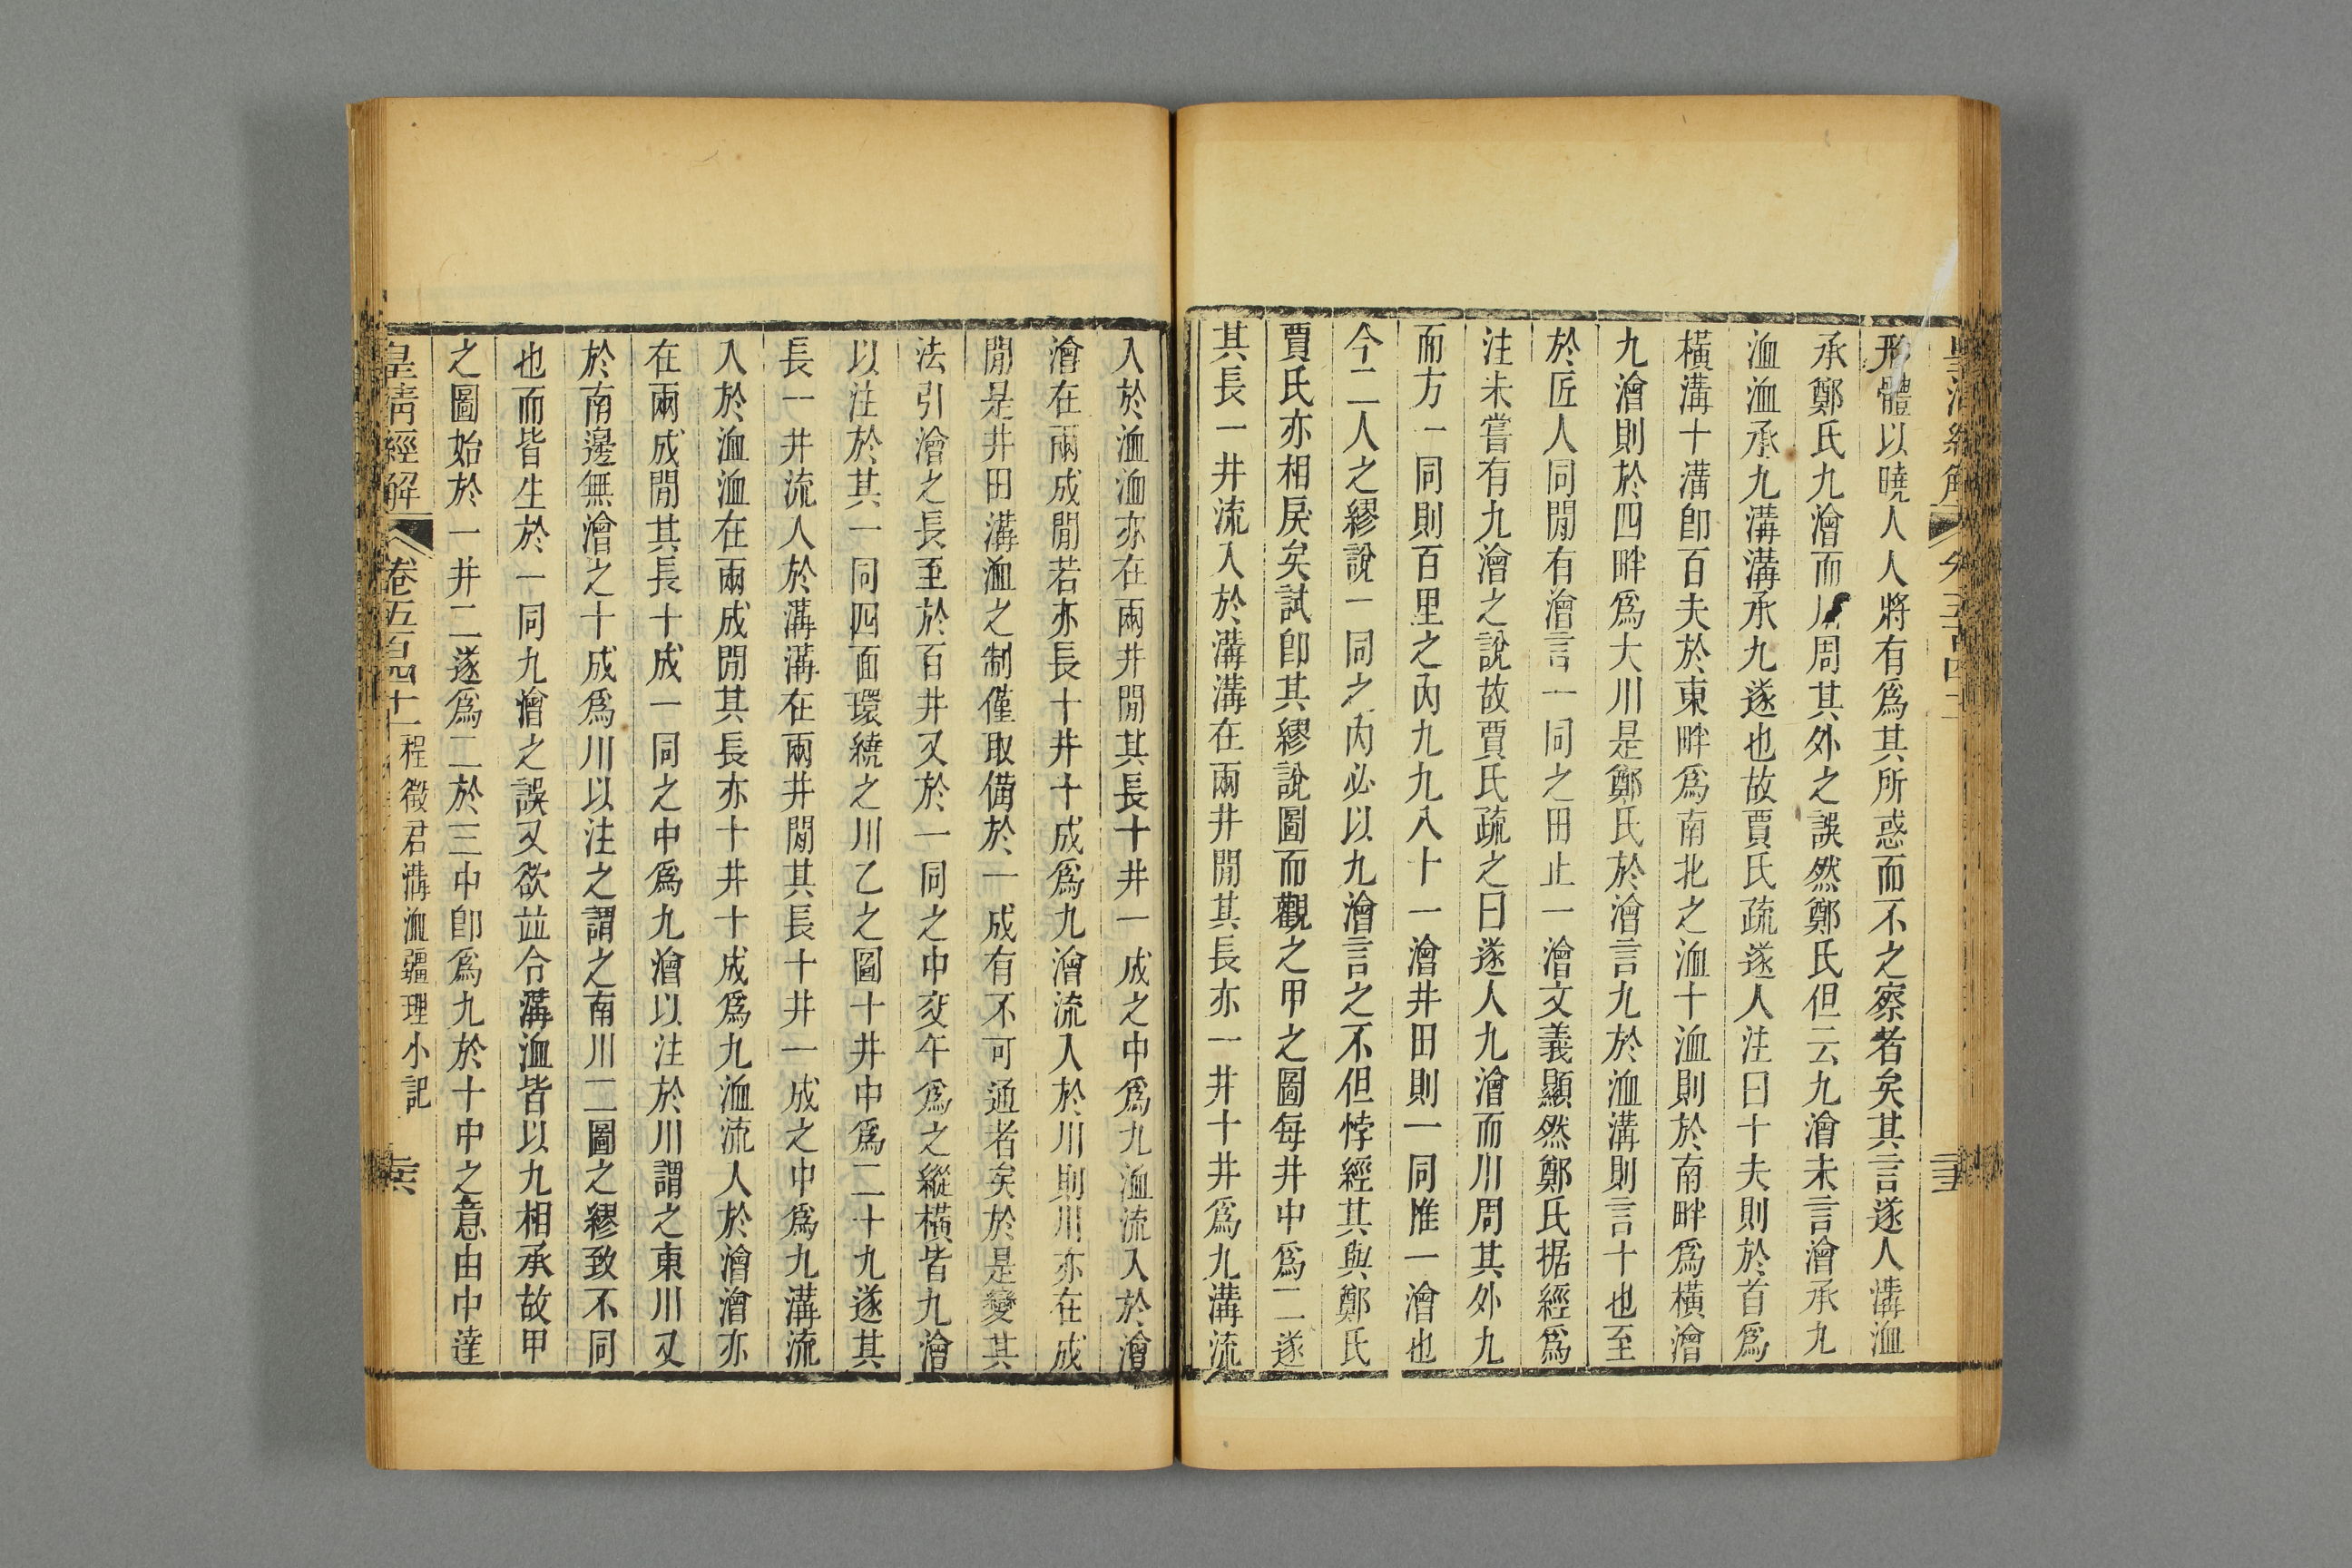 形體以曉人人將有爲其所惑而不之察者矣其言遂人溝洫
承鄭氏九澮而川周其外之誤然鄭氏但云九澮未言澮承九
洫洫承九溝溝承九遂也故賈氏疏遂人注曰十夫則於首爲
橫溝十溝卽百夫於東畔爲南北之洫十洫則於南畔爲橫澮
九澮則於四畔爲大川是鄭氏於澮言九於洫溝則言十也至
於匠人同閒有澮言一同之田止一澮文義顯然鄭氏据經爲
注未嘗有九澮之說故賈氏疏之曰遂人九澮而川周其外九
而方一同則百里之內九九八十一澮井田則一同惟一澮也
今二人之繆說一同之內必以九澮言之不但悖經其與鄭氏
賈氏亦相戾矣試卽其繆說圖而觀之甲之圖每井中爲二遂
其長一井流入於溝溝在兩井閒其長亦一井十井爲九溝流
入於洫洫亦在兩井閒其長十井一成之中爲九洫流入於澮
澮在兩成閒若亦長十井十成爲九澮流入於川則川亦在成
閒是井田溝洫之制僅取備於一成有不可通者矣於是變其
法引澮之長至於百井又於一同之中交午爲之縱橫皆九澮
以注於其一同四面環繞之川乙之圖十井中爲二十九遂其
長一井流入於溝溝在兩井閒其長十井一成之中爲九溝流
入於洫洫在兩成閒其長亦十井十成爲九洫流入於澮澮亦
在兩成閒其長十成一同之中爲九澮以注於川謂之東川又
於南邊無澮之十成爲川以注之謂之南川二圖之繆致不同
也而皆生於一同九澮之誤又欲並合溝洫皆以九相承故甲
之圖始於一井二遂爲二於三中卽爲九於十中之意由中達
皇淸經解 卷五百四十一 程徵君溝洫疆理小記